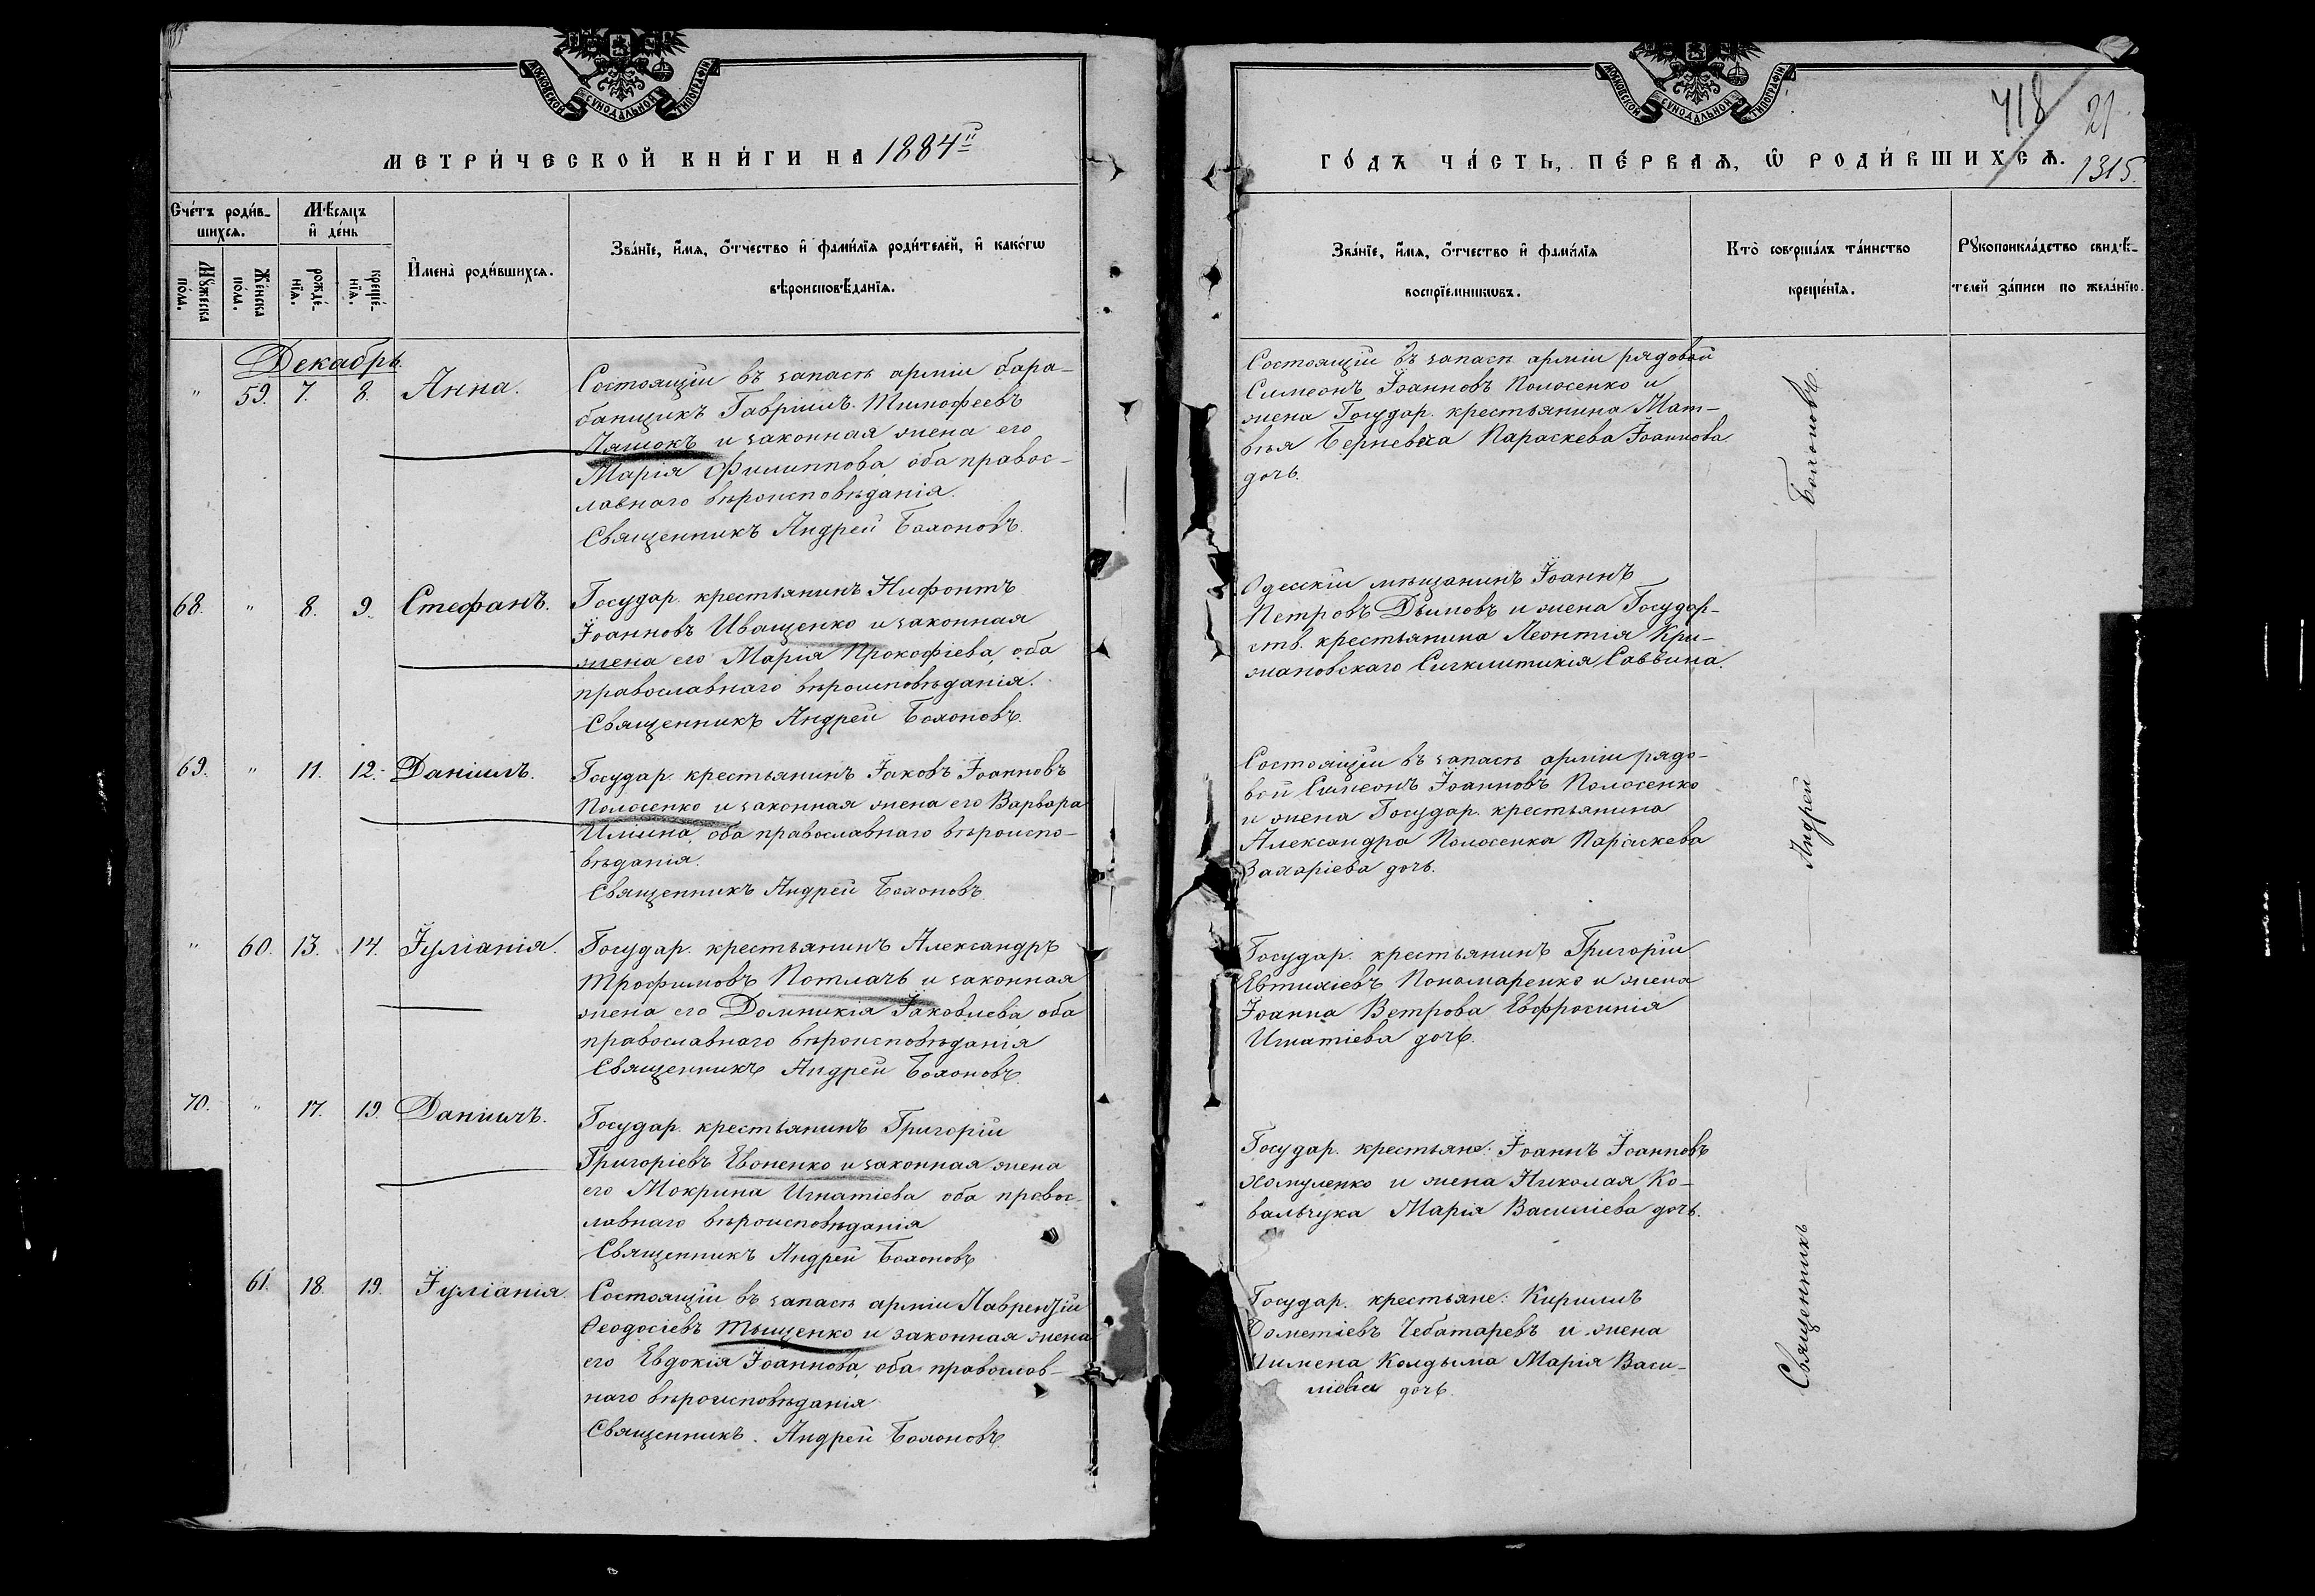 МОСКОВСКОЙ СѴНОДАЛЬНОЙ ТИПОГРАФІИ
МЕТРИ́ЧЕСКОЙ КНИ́ГИ НА 1884й
Сче́тъ роди́в-
шихсѧ.
Мѣ́сѧцъ
и҆ де́нь
Мꙋ́жеска
по́ла.
Же́нска
по́ла.
рожде́-
нїѧ.
креще́-
нїѧ.
И҆мена̀ роди́вшихсѧ.
Зва́нїе, и҆́мѧ, ѻ҆́тчество и҆ фами́лїѧ роди́телей, и҆ како́гѡ
вѣроисповѣ́данїѧ.
Декабрь.
" 59. 7. 8. Анна.
Состоящій въ запасѣ арміи бара-
банщикъ Гавріилъ Тимофеевъ
Ляшокъ и законная жена его
Марія Филиппова, оба правос-
лавнаго вѣроисповѣданія.
Священникъ Андрей
68. " 8. 9. Стефанъ.
Государ. крестьянинъ Нифонтъ
Іоанновъ Иващенко и законная
жена его Марія Прокофіева, оба
православнаго вѣроисповѣданія.
Священникъ Андрей
69. " 11. 12. Даніилъ.
Государ. крестьянинъ Іаковъ Іоанновъ
Полосенко и законная жена его Варвара
Иліина, оба православнаго вѣроиспо-
вѣданія.
Священникъ Андрей
" 60. 13. 14. Іуліанія.
Государ. крестьянинъ Александръ
Трофимовъ Потлачъ и законная
жена его Домникія Іаковлева, оба
православнаго вѣроисповѣданія
Священникъ Андрей
70. " 17. 19. Даніилъ.
Государ. крестьянинъ Григорій
Григоріевъ Евоненко и законная жена
его Мокрина Игнатіева оба правос-
лавнаго вѣроисповѣданія
Священникъ Андрей
61. 18. 19. Іуліанія.
Состоящій въ запасѣ арміи Лаврентій
Ѳеодосіевъ Тыщенко и законная жена
его Евдокія Іоаннова, оба православ-
наго вѣроисповѣданія
Священникъ. Андрей
МОСКОВСКОЙ СѴНОДАЛЬНОЙ ТИПОГРАФІИ
718 21
ГО́ДЪ ЧА́СТЬ, ПЕ́РВАѦ, Ѡ҆ РОДИ́ВШИХСѦ. 1315.
Зва́нїе, и҆́мѧ, ѻ҆́тчество и҆ фами́лїѧ
воспрїе́мникѡвъ.
Кто̀ соверша́лъ та́инство
креще́нїѧ.
Рꙋкоприкла́дство свидѣ́-
телей за́писи по жела́нїю.
Состоящій въ запасѣ арміи рядовой
Симеонъ Іоанновъ Полосенко и
жена Государ. крестьянина Мат-
вѣя Параскева Іоаннова
дочь.
Одесскій мѣщанинъ Іоаннъ
Петровъ Дымовъ и жена Государ-
ств. крестьянина Леонтія Кри-
жановскаго Сигклитикія Саввина.
Состоящій въ запасѣ арміи рядо-
вой Симеонъ Іоанновъ Полосенко
и жена Государ. крестьянина
Александра Полосенка Параскева
Захаріева дочь.
Государ. крестьянинъ Григорій
Евтихіевъ Пономаренко и жена
Іоанна Ветрова Евфросинія
Игнатіева дочь.
Государ. крестьяне: Іоаннъ Іоанновъ
Хомуленко и жена Николая Ко-
вальчука Марія Василіева дочь.
Государ. крестьяне: Кириллъ
Дометіевъ Чеботаревъ и жена
Пимена Колдыма Марія Васи-
ліева дочь.
Священникъ Андрей